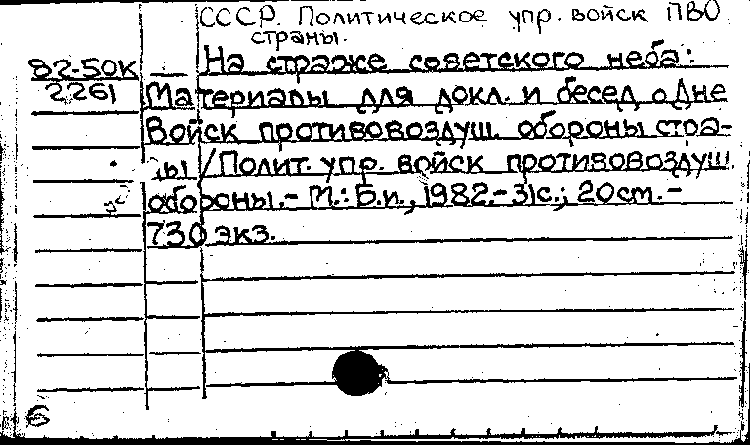 СССР. Политическое упр. войск ПВО
страны.
82-50К — На страже советского неба:
2261 Материалы для докл. и бесед о Дне
Войск противовоздуш. обороны стра-
ны / Полит. упр. войск противовоздуш.
обороны. - М.: Б.и., 1982. - 31с.; 20см. -
730 экз.
6